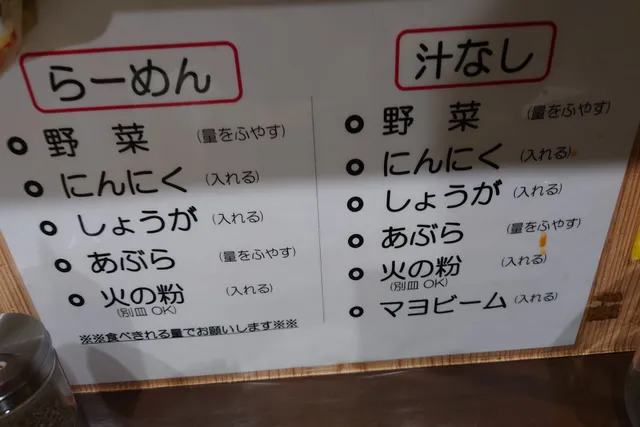 らーめん
野菜 (量をふやす)
にんにく (入れる)
しょうが (入れる)
あぶら (量をふやす)
火の粉 (入れる)
(別皿 OK)
※※食べきれる量でお願いします※※
汁なし
野菜 (量をふやす)
にんにく (入れる)
しょうが (入れる)
あぶら (量をふやす)
火の粉 (入れる)
(別皿 OK)
マヨビーム (入れる)